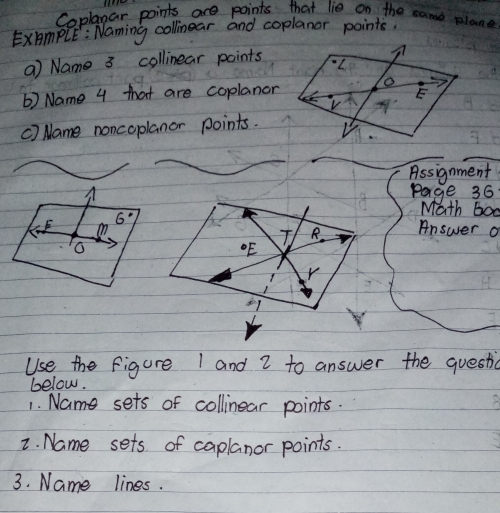 Coplanar points are points that lie on the same plane
EXAMPLE: Naming collinear and coplanar points.
a) Name 3 collinear points
b) Name 4 that are coplanor
c) Name noncoplanor points.
L
O
E
V
Assignment
Page 36
Math boo
Answer
F
G
O
M
E
T
R
Y
Use the figure 1 and 2 to answer the questio
below.
1. Name sets of collinear points.
2. Name sets of caplanor points.
3. Name lines.